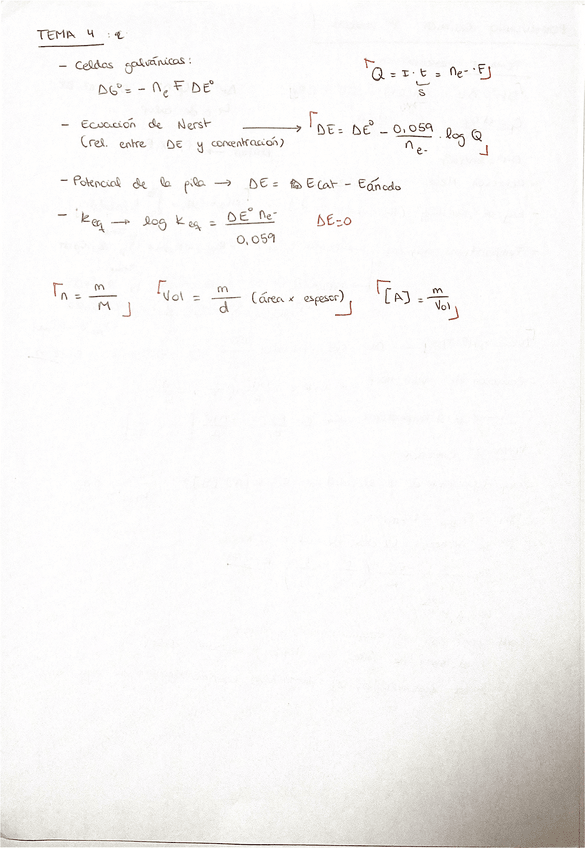 TEMA 4 : e
- Celdas galvánicas:
ΔG° = - ne F ΔE°
Q = I · t = ne- · F
s
- Ecuación de Nerst → ΔE = ΔE° - 0,059/ne- · log Q
(rel. entre ΔE y concentración)
- Potencial de la pila → ΔE = Ecat - Eánodo
- Keq → log Keq = ΔE° ne- / 0,059 ΔE=0
n = m/M Vol = m/d (área x espesor) [A] = m/Vol